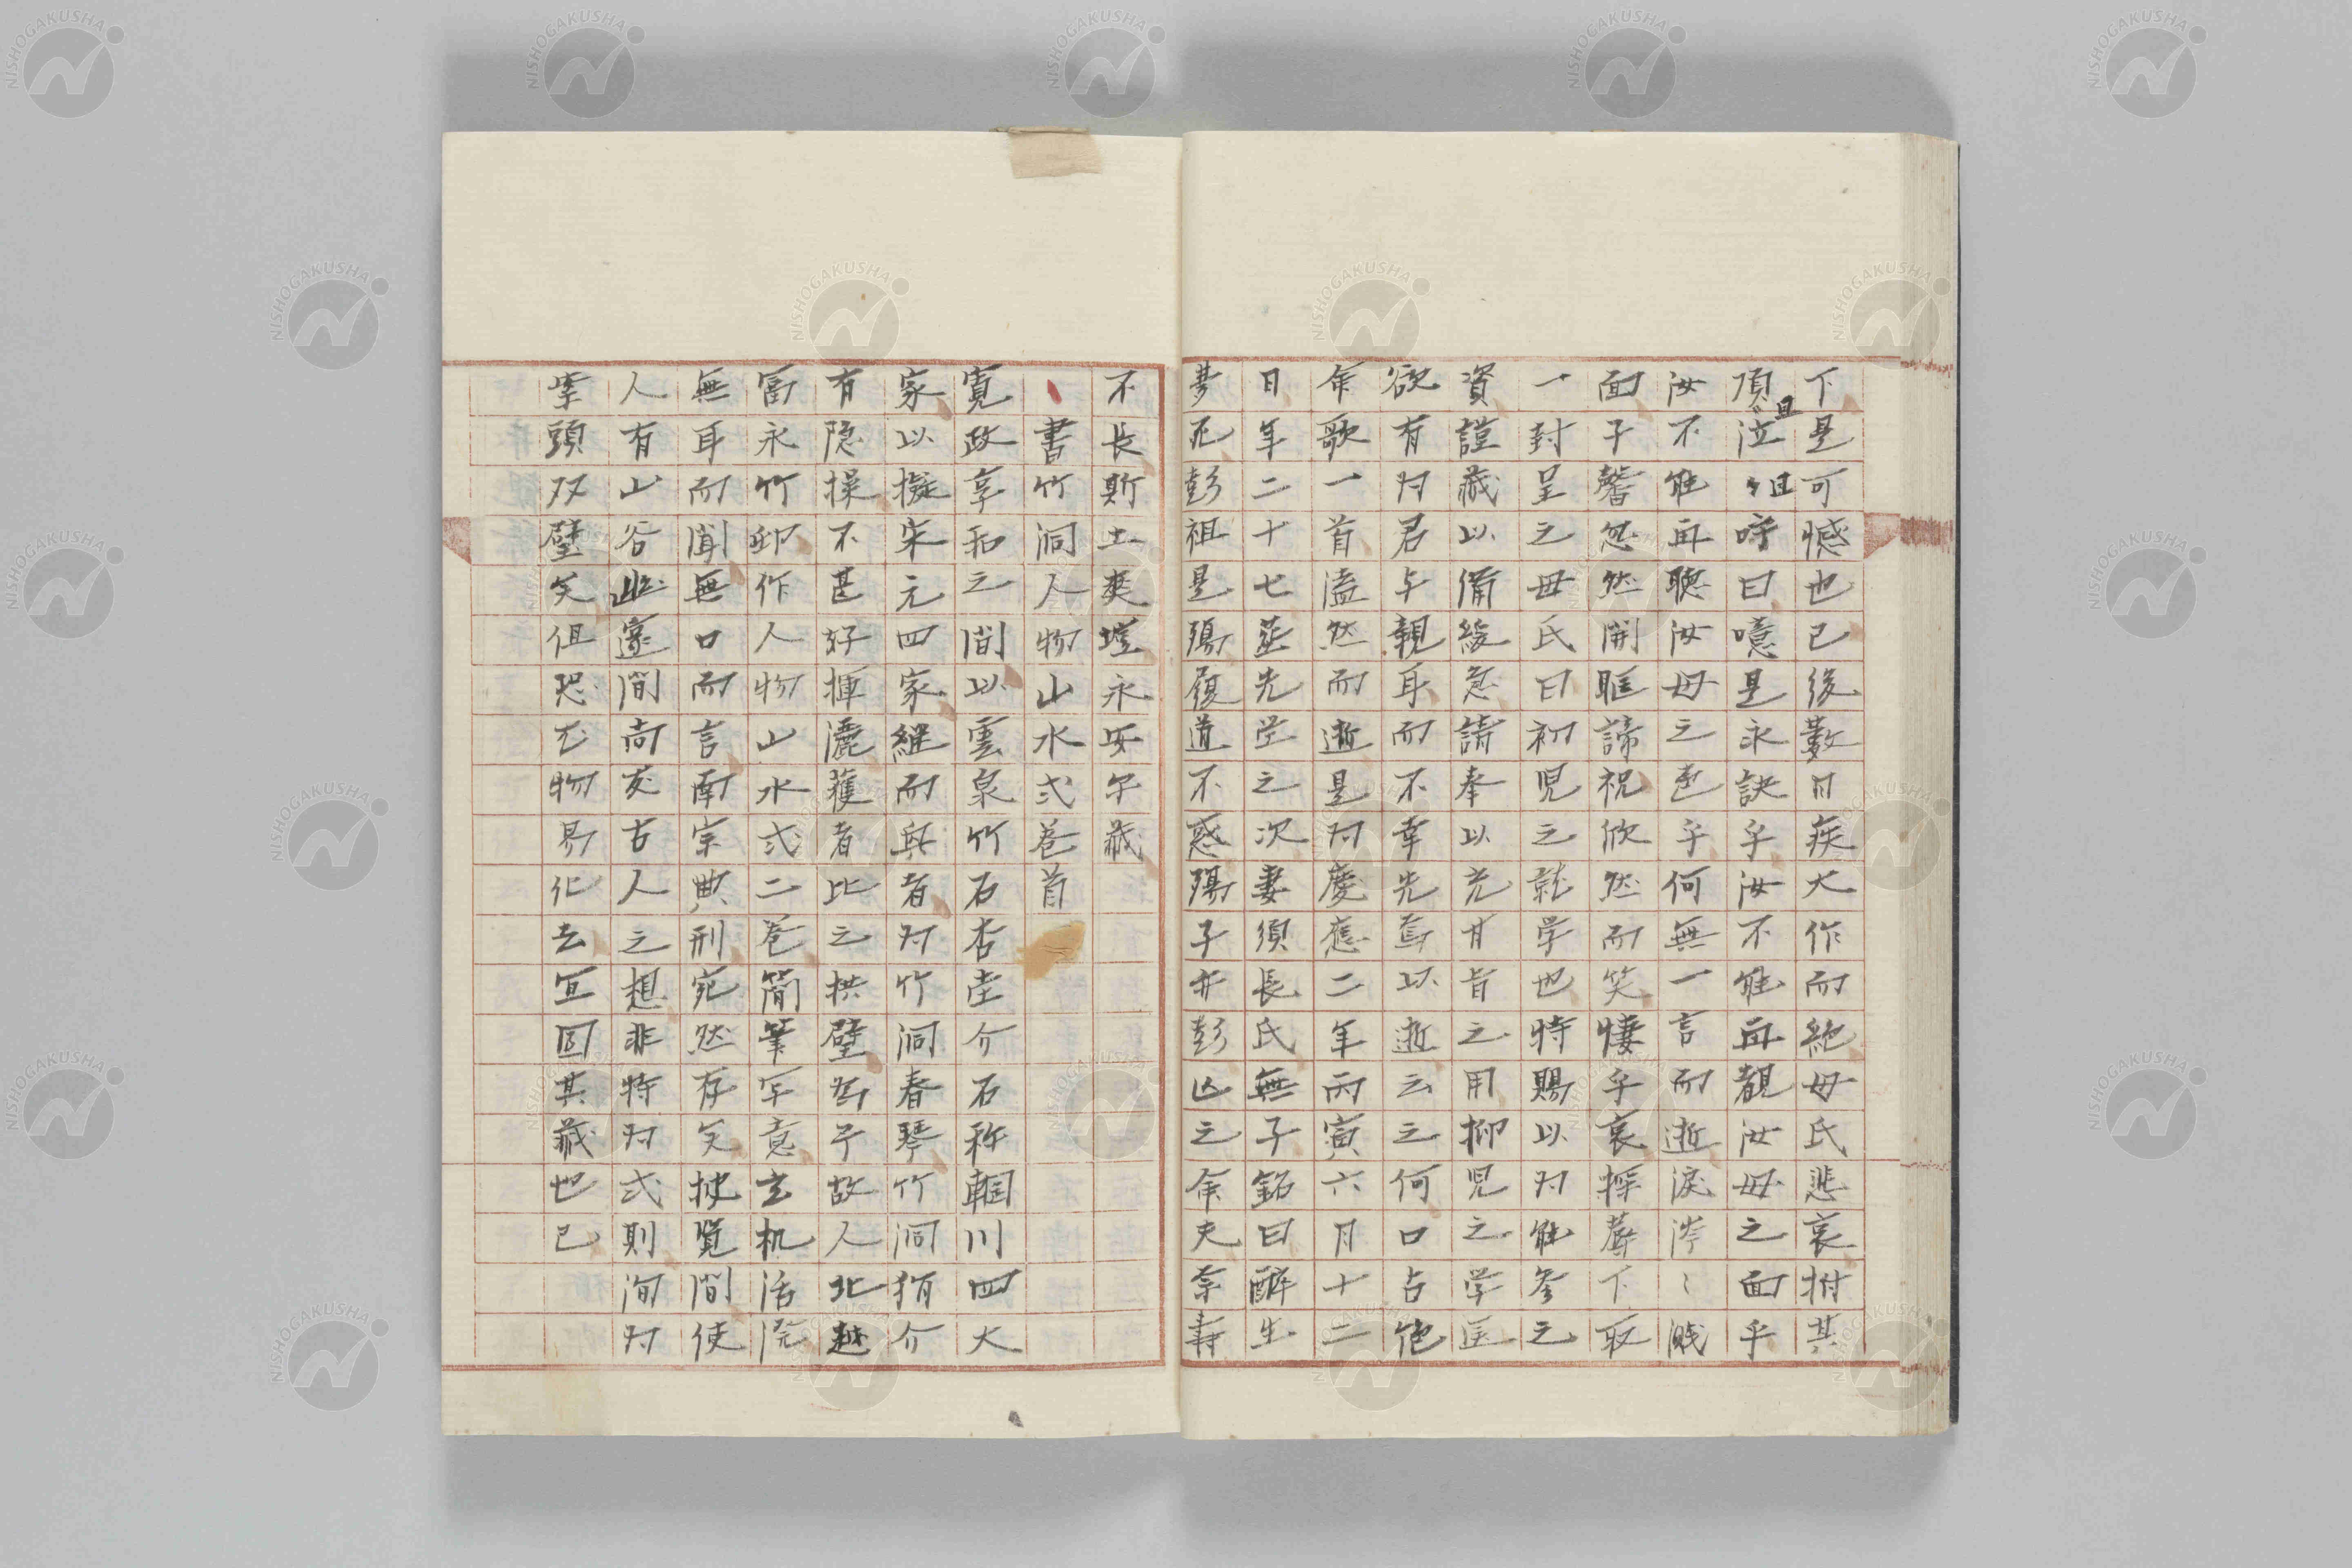 下是可憾也已後数日疾大作而絶母氏悲哀拊其
項且泣且呼曰噫是永訣乎汝不能再覩汝母之面乎
汝不能再聴汝母之乎何無一言而逝涙涔〻濺
面子馨忽然開眶諦視欣然而笑悽乎哀探蓐下取
一封呈之母氏曰初児之就学也特賜以対能参之
資謹蔵以備緩急請奉以充甘旨之用抑児之学医
欲有対君与親耳而不幸先焉以逝云之何口占倭
歌一首溘然而逝是対慶応二年丙寅六月十二
日年二十七葬先塋之次妻須長氏無子銘曰酔生
夢死彭祖是殤履道不惑殤子亦彭凶之命夭奈寿
不長斯土爽塏永安尓蔵
書竹洞人物山水弍巻首
寛政享和之間以雲泉竹石杏堂介石称輞川四大
家以擬宋元四家継而興者対竹洞春琴竹洞猶介
有隠操不甚好揮灑獲者比之拱璧焉予故人北越
冨永竹邨作人物山水弍二巻簡筆写意玄机活溌
無耳而聞無口而言南宗典刑宛然存矣披覧間使
人有山谷幽邃間尚友古人之想非特対弍則洵対
案頭双璧矣但恐尤物易化去宜固其蔵也已